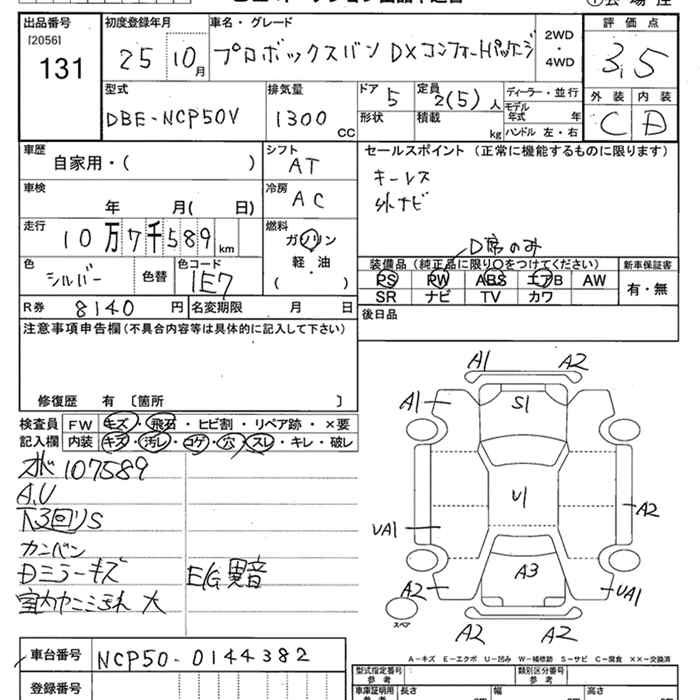 出品番号
[2056]
131
初度登録年月
25 10月
車名・グレード
プロボックスバン DXコンフォートパッケージ
2WD
・
4WD
評価点
3.5
外装 内装
C D
型式
DBE-NCP50V
排気量
1300 CC
ドア
5
形状
定員
2(5)人
積載
kg
ディーラー・並行
モデル年式 年
ハンドル 左・右
車歴
自家用・( )
シフト
AT
車検
年 月( 日)
冷房
AC
走行
10万7千589 km
燃料
ガソリン
・
軽・油
( )
色
シルバー
色替
色コード
1E7
R券 8140 円
名変期限 月 日
セールスポイント (正常に機能するものに限ります)
キーレス
外ナビ
D席のみ
装備品(純正品に限り○をつけてください)
PS PW ABS エアB AW
SR ナビ TV カワ
新車保証書
有・無
後日品
注意事項申告欄(不具合内容等は具体的に記入して下さい)
修復歴 有〔箇所 〕
検査員記入欄
FW キズ・飛石・ヒビ割・リペア跡・×要
内装 キズ・汚レ・コゲ・穴・スレ・キレ・破レ
107589
A.U
下3回りS
カンバン
Dミラーキズ
E/G異音
大
A1 A2
A1 S1
U1
A2
UA1
A3
A2 UA1
スペア
A2 A2
A-キズ E-エクボ U-凹み W-補修跡 S-サビ C-腐食 ××-交換済
車台番号 NCP50-0144382
登録番号
型式指定番号
参考
類別区分番号
参考
車庫証明用
参考
長さ
幅
高さ